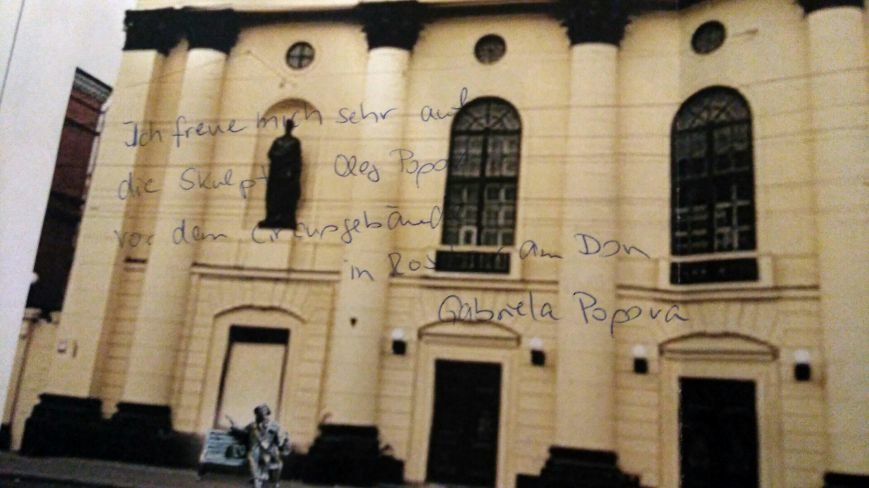 Ich freue mich sehr auf
die Skulptur Oleg Popov
vor dem Circusgebäude
in Rostov am Don
Gabriela Popova